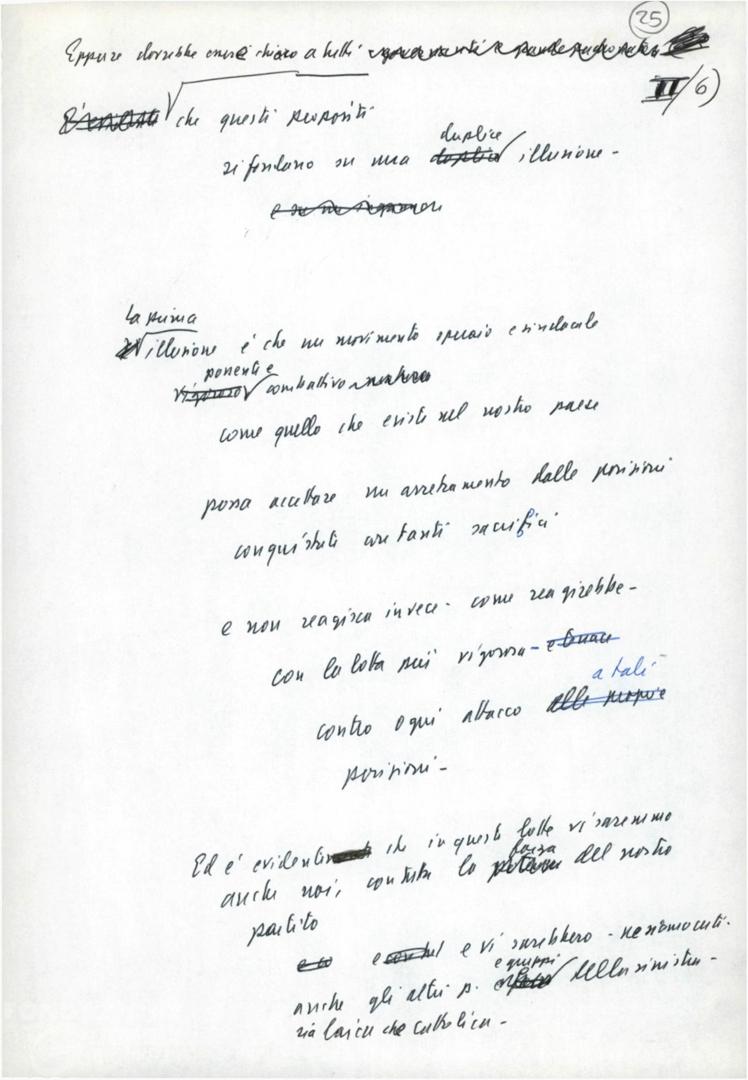 25
Eppure dovrebbe essere chiaro a tutti
II/6)
che questi propositi
duplice
si fondano su una illusione -
La prima
illusione è che un movimento operaio e sindacale
possente e
vigoroso combattivo
come quello che esiste nel nostro paese
possa accettare un arretramento dalle posizioni
conquistate con tanti sacrifici
e non reagisca invece - come reagirebbe -
con la lotta più vigorosa -
a tali
contro ogni attacco alle proprie
posizioni -
Ed è evidente che in queste lotte vi saremmo
forza
anche noi, con tutta la del nostro
partito
e vi sarebbero - ne siamo certi -
e gruppi
anche gli altri p. della sinistra -
sia laica che cattolica -